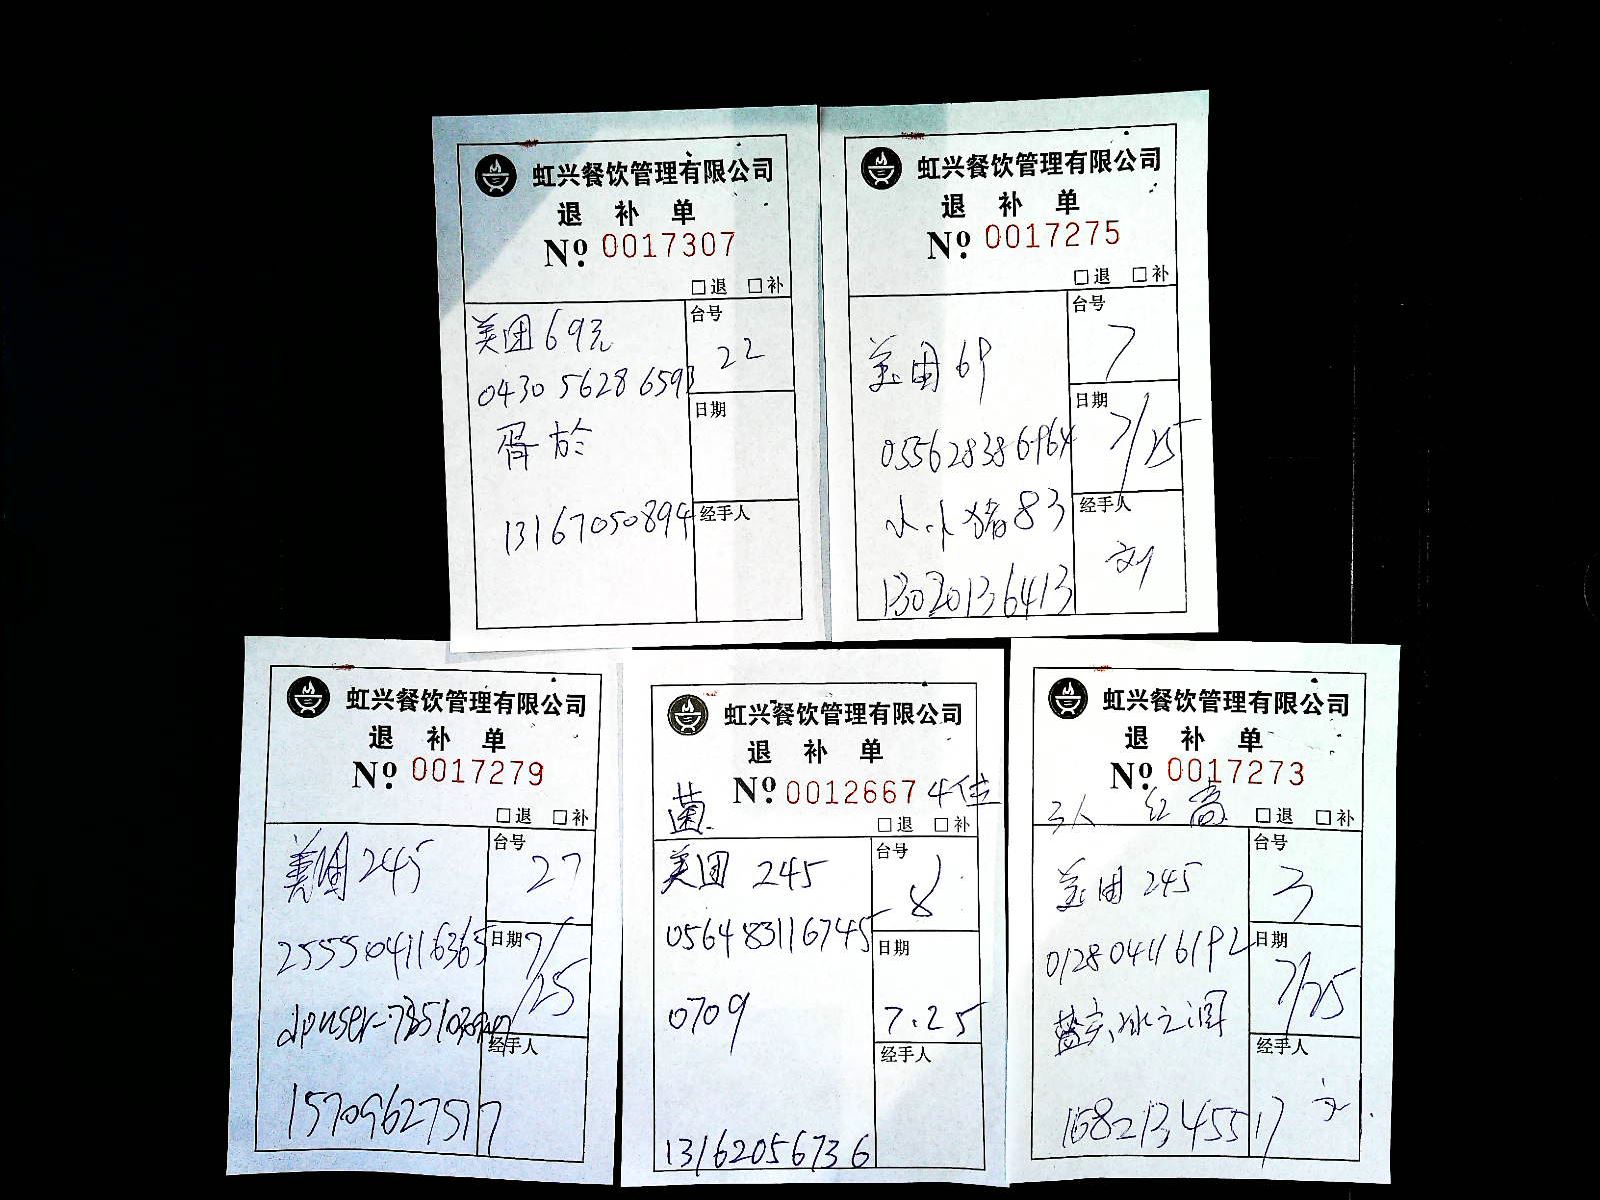 虹兴餐饮管理有限公司
退 补 单
Nº 0017307
□退 □补
美团69元
0430 5628 6593
台号
22
日期
经手人
13167050894
虹兴餐饮管理有限公司
退 补 单
Nº 0017275
□退 □补
美团69
055628386964
小小猪83
13020136413
台号
7
日期
7/25
经手人
刘
虹兴餐饮管理有限公司
退 补 单
Nº 0017279
□退 □补
美团245
255504116365
15709627517
台号
27
日期
7/25
经手人
虹兴餐饮管理有限公司
退 补 单
Nº 0012667 4位
菌
□退 □补
美团 245
056483116745
0709
13162056736
台号
8
日期
7.25
经手人
虹兴餐饮管理有限公司
退 补 单
Nº 0017273
三人 红高
□退 □补
美团 245
012804116192
冰之润
台号
3
日期
7/25
经手人